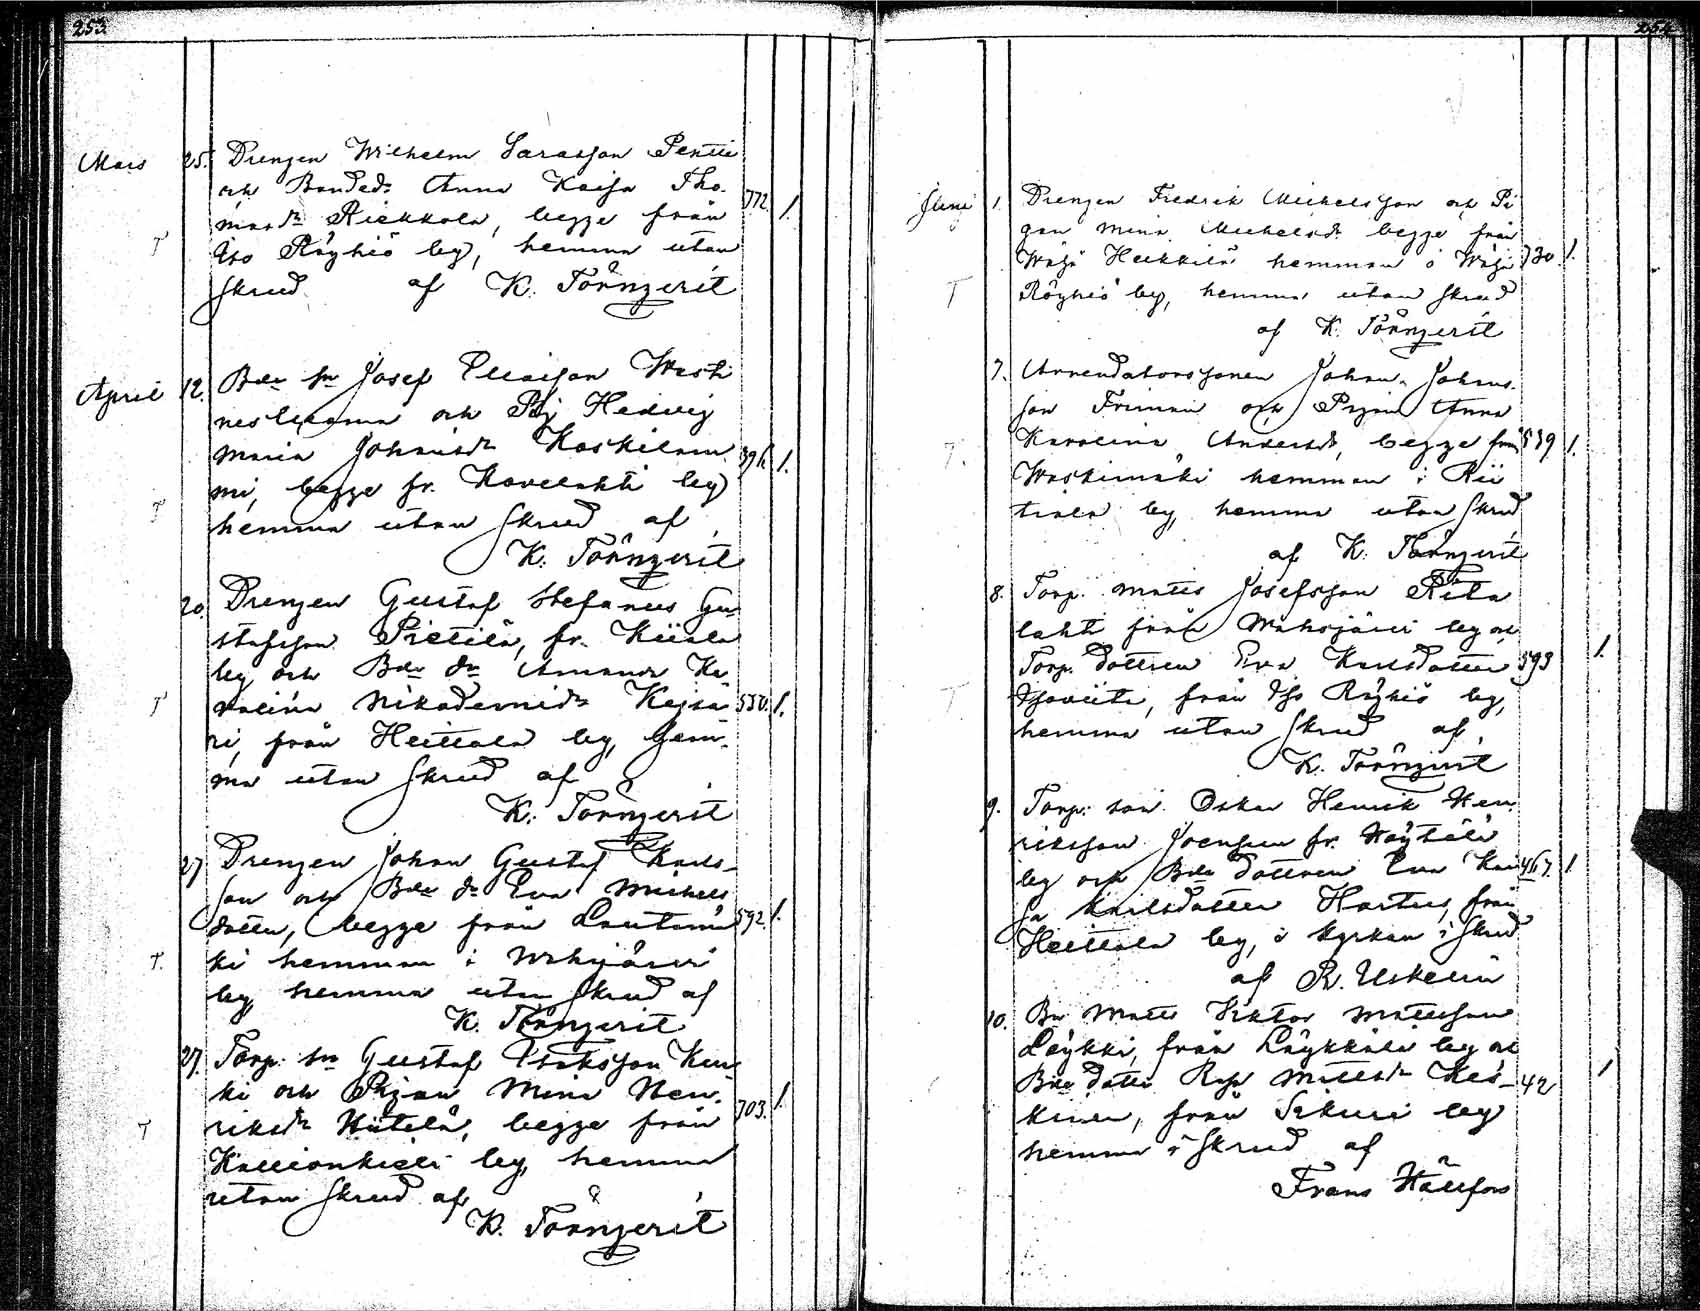 253.
Mars 25. Drengen Wilhelm Sarasson Pentti
och Bonded: Anna Kaisa Tho-
masdr Riekkola, begge från 772. 1.
T Iso Röyhiö by, hemma utan
skrud af K. Törnqerit
April 12. Bde sn Josef Eliaisson
och Pig Hedvig
Maria Johansdr Koskilam 396. 1.
mi, begge fr. Kovelahti by
T hemma utan skrud af
K. Törnqerit
20. Drengen Gustaf Stefanus Gu-
stafsson Pietilä, fr. Kiiala
by och Bde dr Amanda Ka-
rolina Nikodemidr Keisa- 550. 1.
T ri, från Heittola by, hem-
ma utan skrud af
K. Törnqerit
27 Drengen Johan Gustaf Karls-
son och Bde dr Eva Michels
dotter, begge från Lautamä 592. 1.
T. ki hemman i Wahojärvi
by, hemma utan skrud af
K. Törnqerit
27. Torp. sn Gustaf Isaksson
ki och Pigan Mina Hen-
riksdr Hiitelä, begge från 703. 1.
T by, hemma
utan skrud af
K. Törnqerit
254
Juni 1. Drengen Fredrik Michelsson och Pi
gan Mina Michelsdr begge från
Wähä Heikkilä hemman i Wähä 730. 1.
T Röyhiö by, hemma utan skrud
af K. Törnqerit
7. Arrendatorssonen Johan Johans-
son Friman och Pigan Anna
T. Karolina Andersdr, begge från 539 1.
Waskimäki hemman i Rii
tiala by, hemma utan skrud
af K. Törnqerit
8. Torp. Matts Josefsson Rita
lahti från Wahojärvi by och
Torp. dottren Eva Karlsdotter 593 1.
T från Iso Röyhiö by,
hemma utan skrud af
K. Törnqerit
9. Torp: son Oskar Henrik Hen
riksson Joensuu fr. Höytölä
by och Bde dottren Eva Kai 467. 1.
sa Karlsdotter Hartus, från
Heittola by, i kyrkan i skrud
af R. Uskelin
10. Bn Matts Viktor Mattsson
Löykki, från Löykkälä by och
Bde dotter Rosa Mattsdr Kes- 42 1
kinen, från Sikuri by
hemma i skrud af
Frans Hällfors